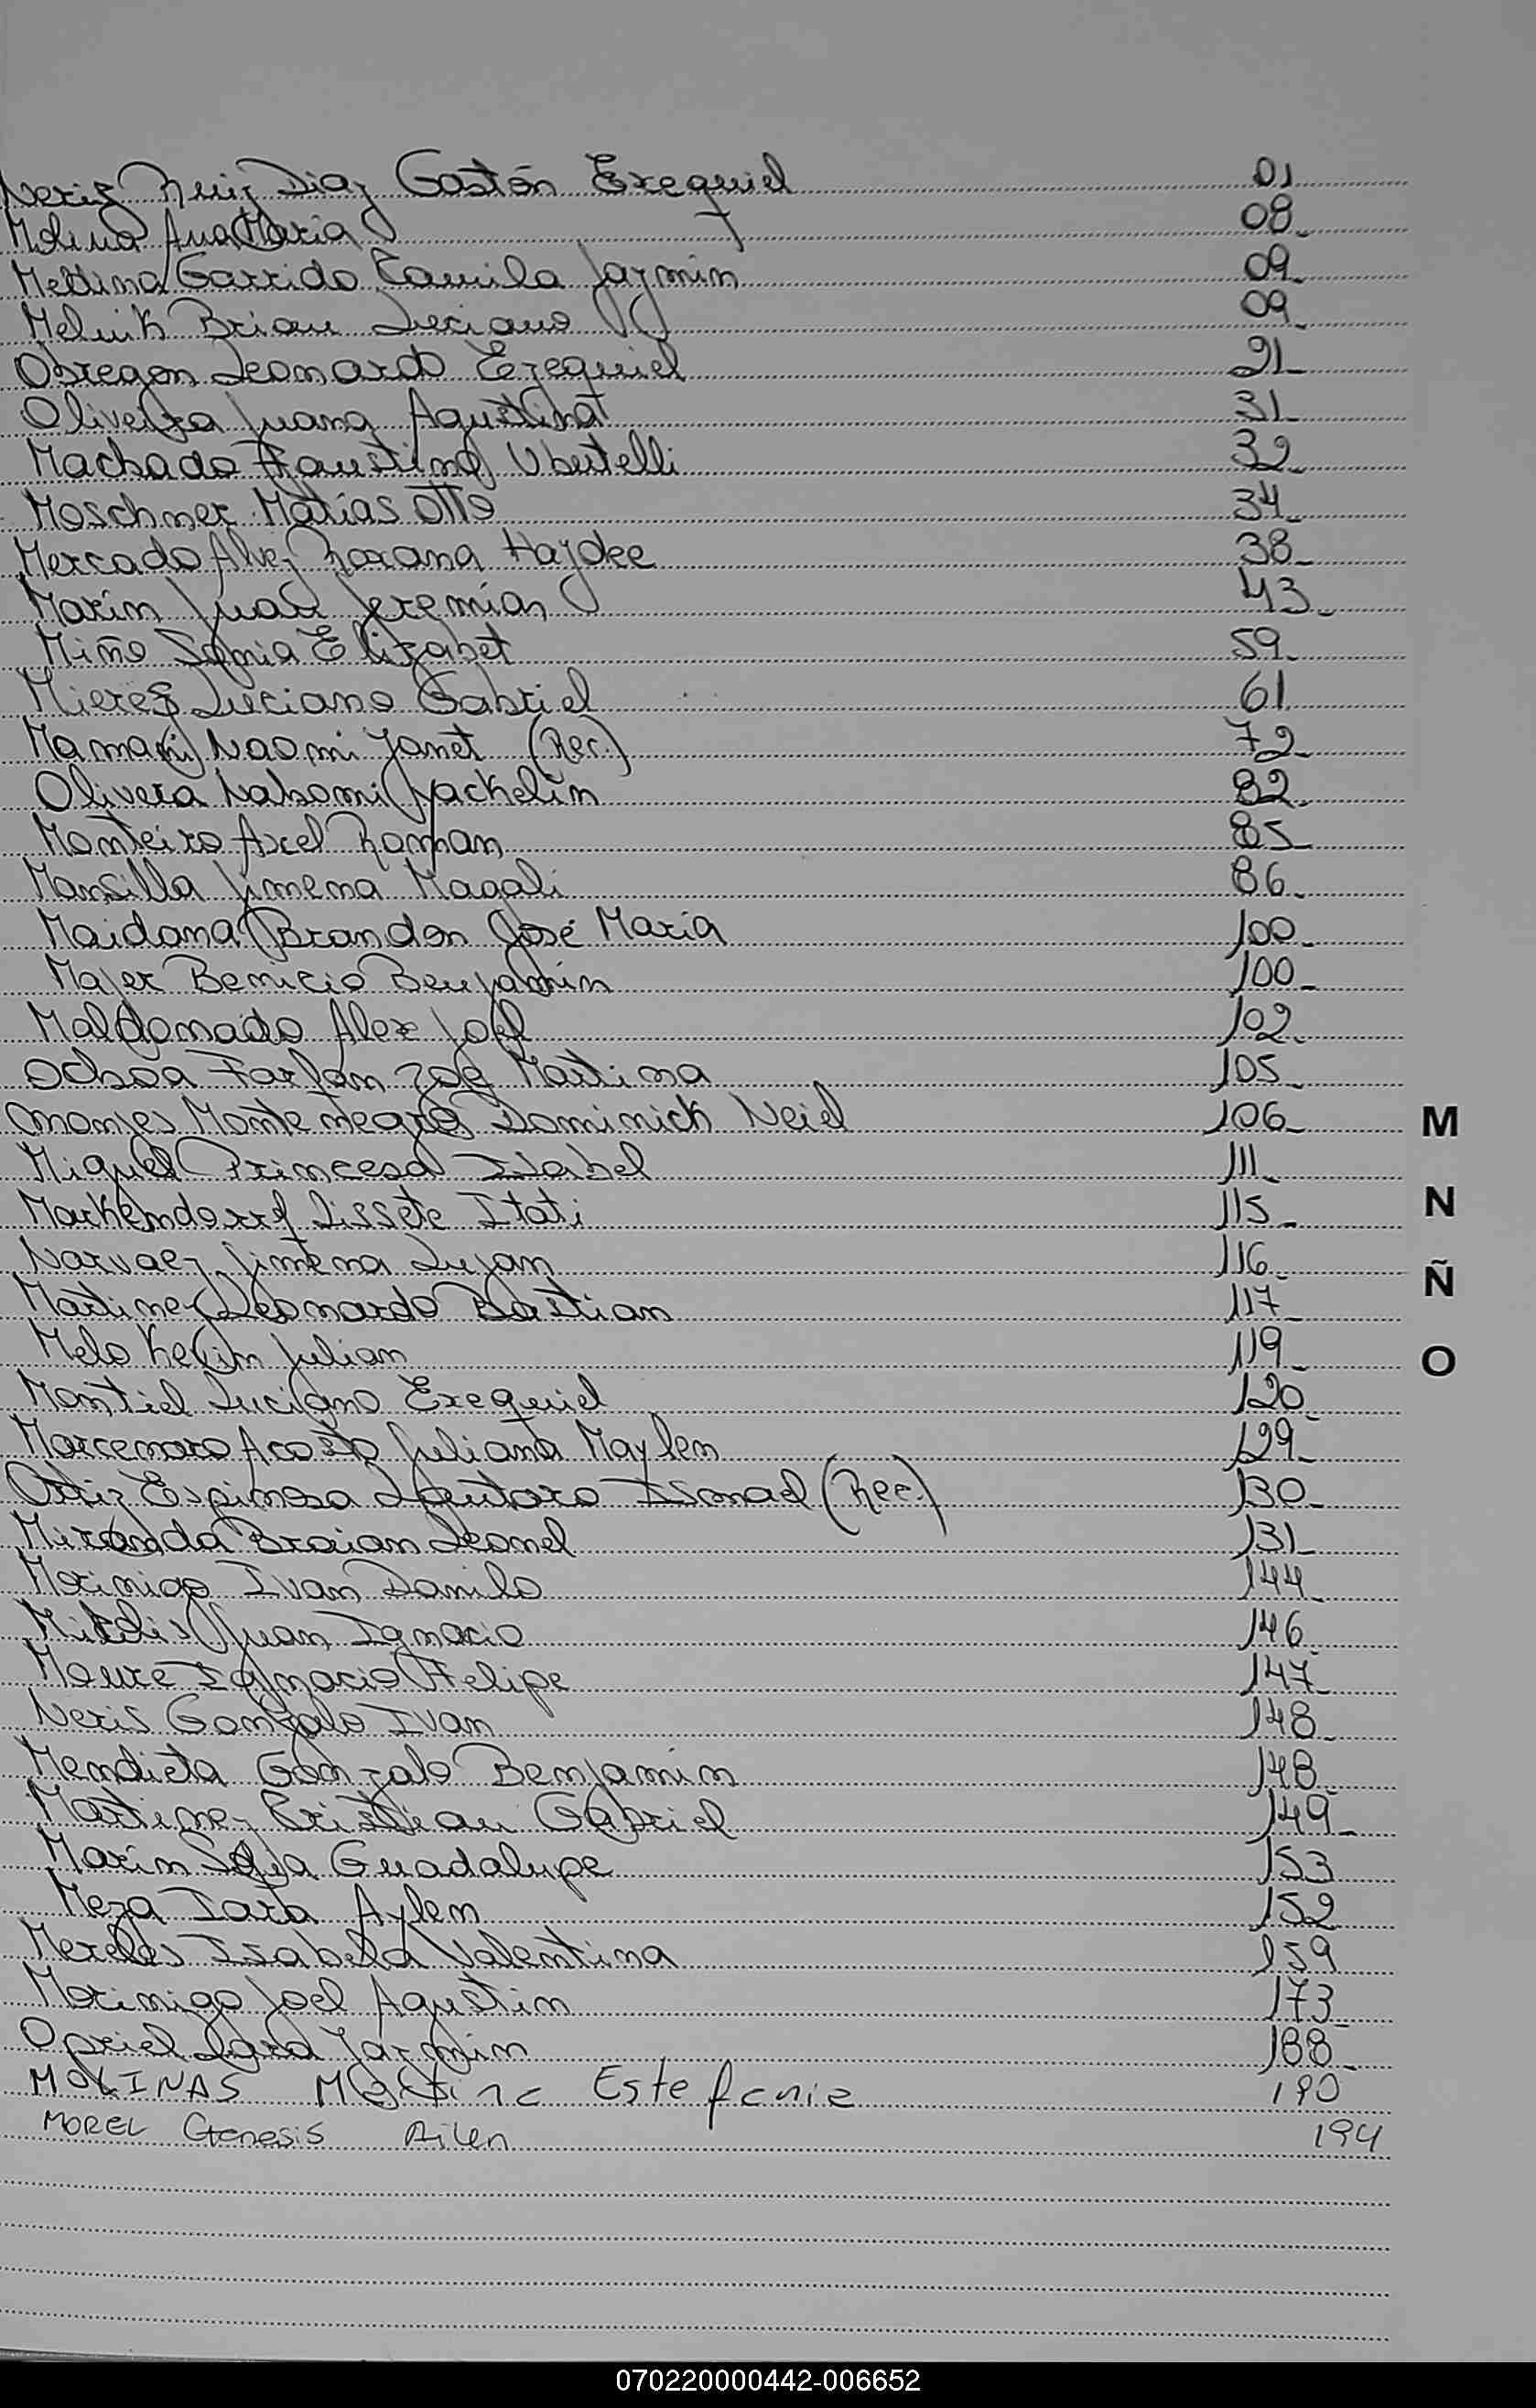 Neris Ruiz Diaz Gastón Exequiel 01
Molina Ana Maria 08
Medina Garrido Camila Jazmin 09
Melnik Brian Luciano 09
Obregon Leonardo Ezequiel 21
Oliveira Juana Agustina 31
Machado Faustino Ubertelli 32
Moschner Matías Otto 34
Mercado Alvez Roxana Haydee 38
Marín Juan Jeremías 43
Miño Sonia Elizabet 59
Mieres Luciano Gabriel 61
Mamani Naomi Janet (Rec.) 72
Olivera Nahomi Jackelin 82
Monteiro Axel Roman 85
Mansilla Jimena Magali 86
Maidana Brandon José María 100
Majer Benicio Benjamín 100
Maldonado Alex Joel 102
Ochoa Farfan Zoe Martina 105
Monjes Montenegro Dominick Neiel 106
Miguel Princesa Isabel 111
Markendorf Lissete Itati 115
Narvaez Jimena Lujan 116
Martinez Leonardo Bastian 117
Melo Kevin Julian 119
Montiel Luciano Exequiel 120
Marcenaro Acosta Juliana Maylen 129
Ortiz Espinosa Lautaro Ismael (Rec.) 130
Miranda Braian Leonel 131
Morinigo Ivan Danilo 144
Juan Ignacio 146
Moure Ignacio Felipe 147
Neris Gonzalo Ivan 148
Mendieta Gonzalo Benjamin 148
Martinez Cristian Gabriel 149
Marin Sofia Guadalupe 153
Meza Iara Aylen 152
Mereles Isabela Valentina 159
Morinigo Joel Agustin 173
Opriel Lara Jazmin 188
MOLINAS Martina Estefania 190
MOREL Genesis Ailen 194
M
N
Ñ
O
070220000442-006652